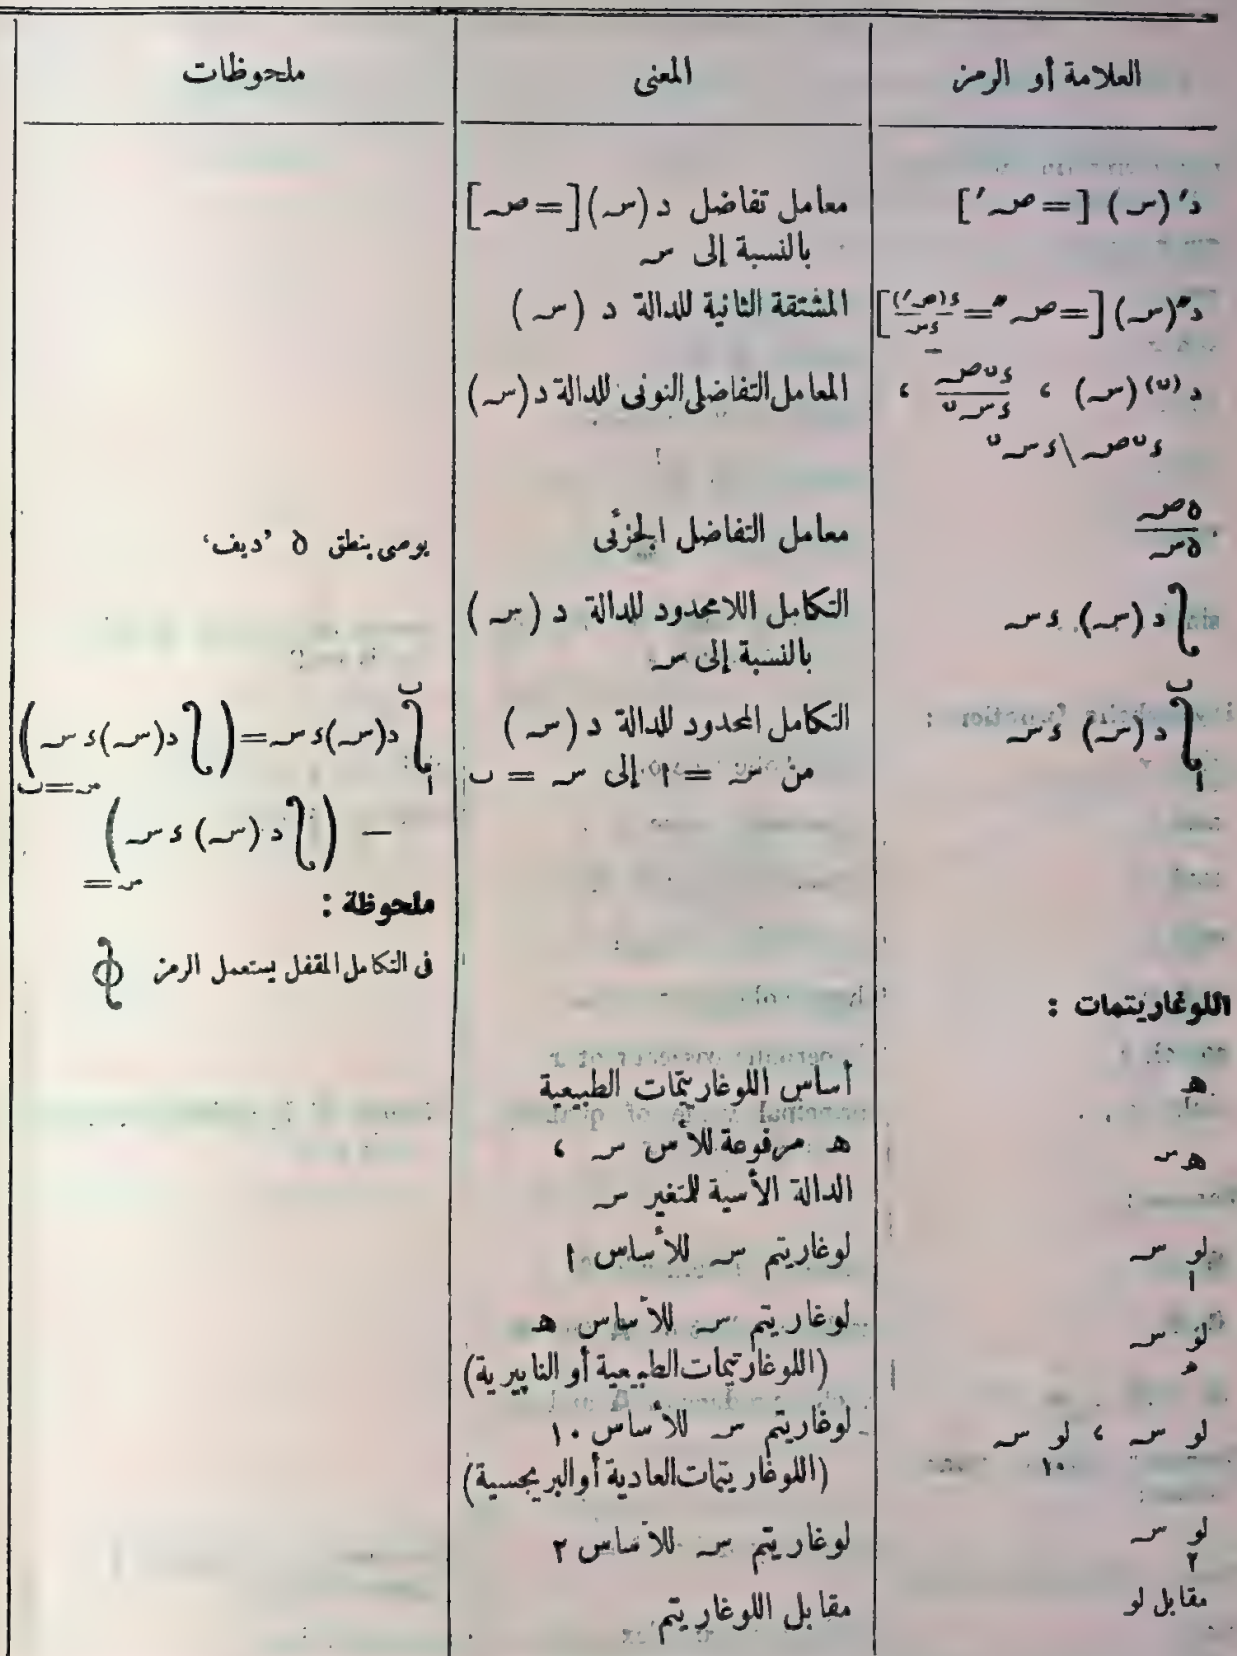 العلامة أو الرمز	المعنى	ملحوظات
د′(س) [= ص′]	معامل تفاضل د(س) [= ص]
بالنسبة إلى س
د″(س) [= ص″ = ء(ص′)/ءس]	المشتقة الثانية للدالة د (س)
د(ن)(س) ، ءن ص/ءسن ،	المعامل التفاضلى النونى للدالة د(س)
ءن ص \ ءسن
∂ص/∂س	معامل التفاضل الجزئى	يوصى بنطق ∂ ’ديف‘
∫ د (س) ءس	التكامل اللامحدود للدالة د (س)
بالنسبة إلى س
∫ا ب د (س) ءس	التكامل المحدود للدالة د (س)	∫ا ب د(س)ءس = (∫ د(س)ءس) س=ب
من س = ا إلى س = ب
— (∫ د (س) ءس) س=
ملحوظة :
فى التكامل المقفل يستعمل الرمز ∮
اللوغاريتمات :
ھ	أساس اللوغاريتمات الطبيعية
ھس	ھ مرفوعة للأس س ،
الدالة الأسية للمتغير س
لو ا س	لوغاريتم س للأساس ا
لو ھ س	لوغاريتم س للأساس ھ
(اللوغارتيمات الطبيعية أو النابيرية)
لو س ، لو ١٠ س	لوغاريتم س للأساس ١٠
(اللوغاريتمات العادية أو البريجسية)
لو ٢ س	لوغاريتم س للأساس ٢
مقابل لو	مقابل اللوغاريتم